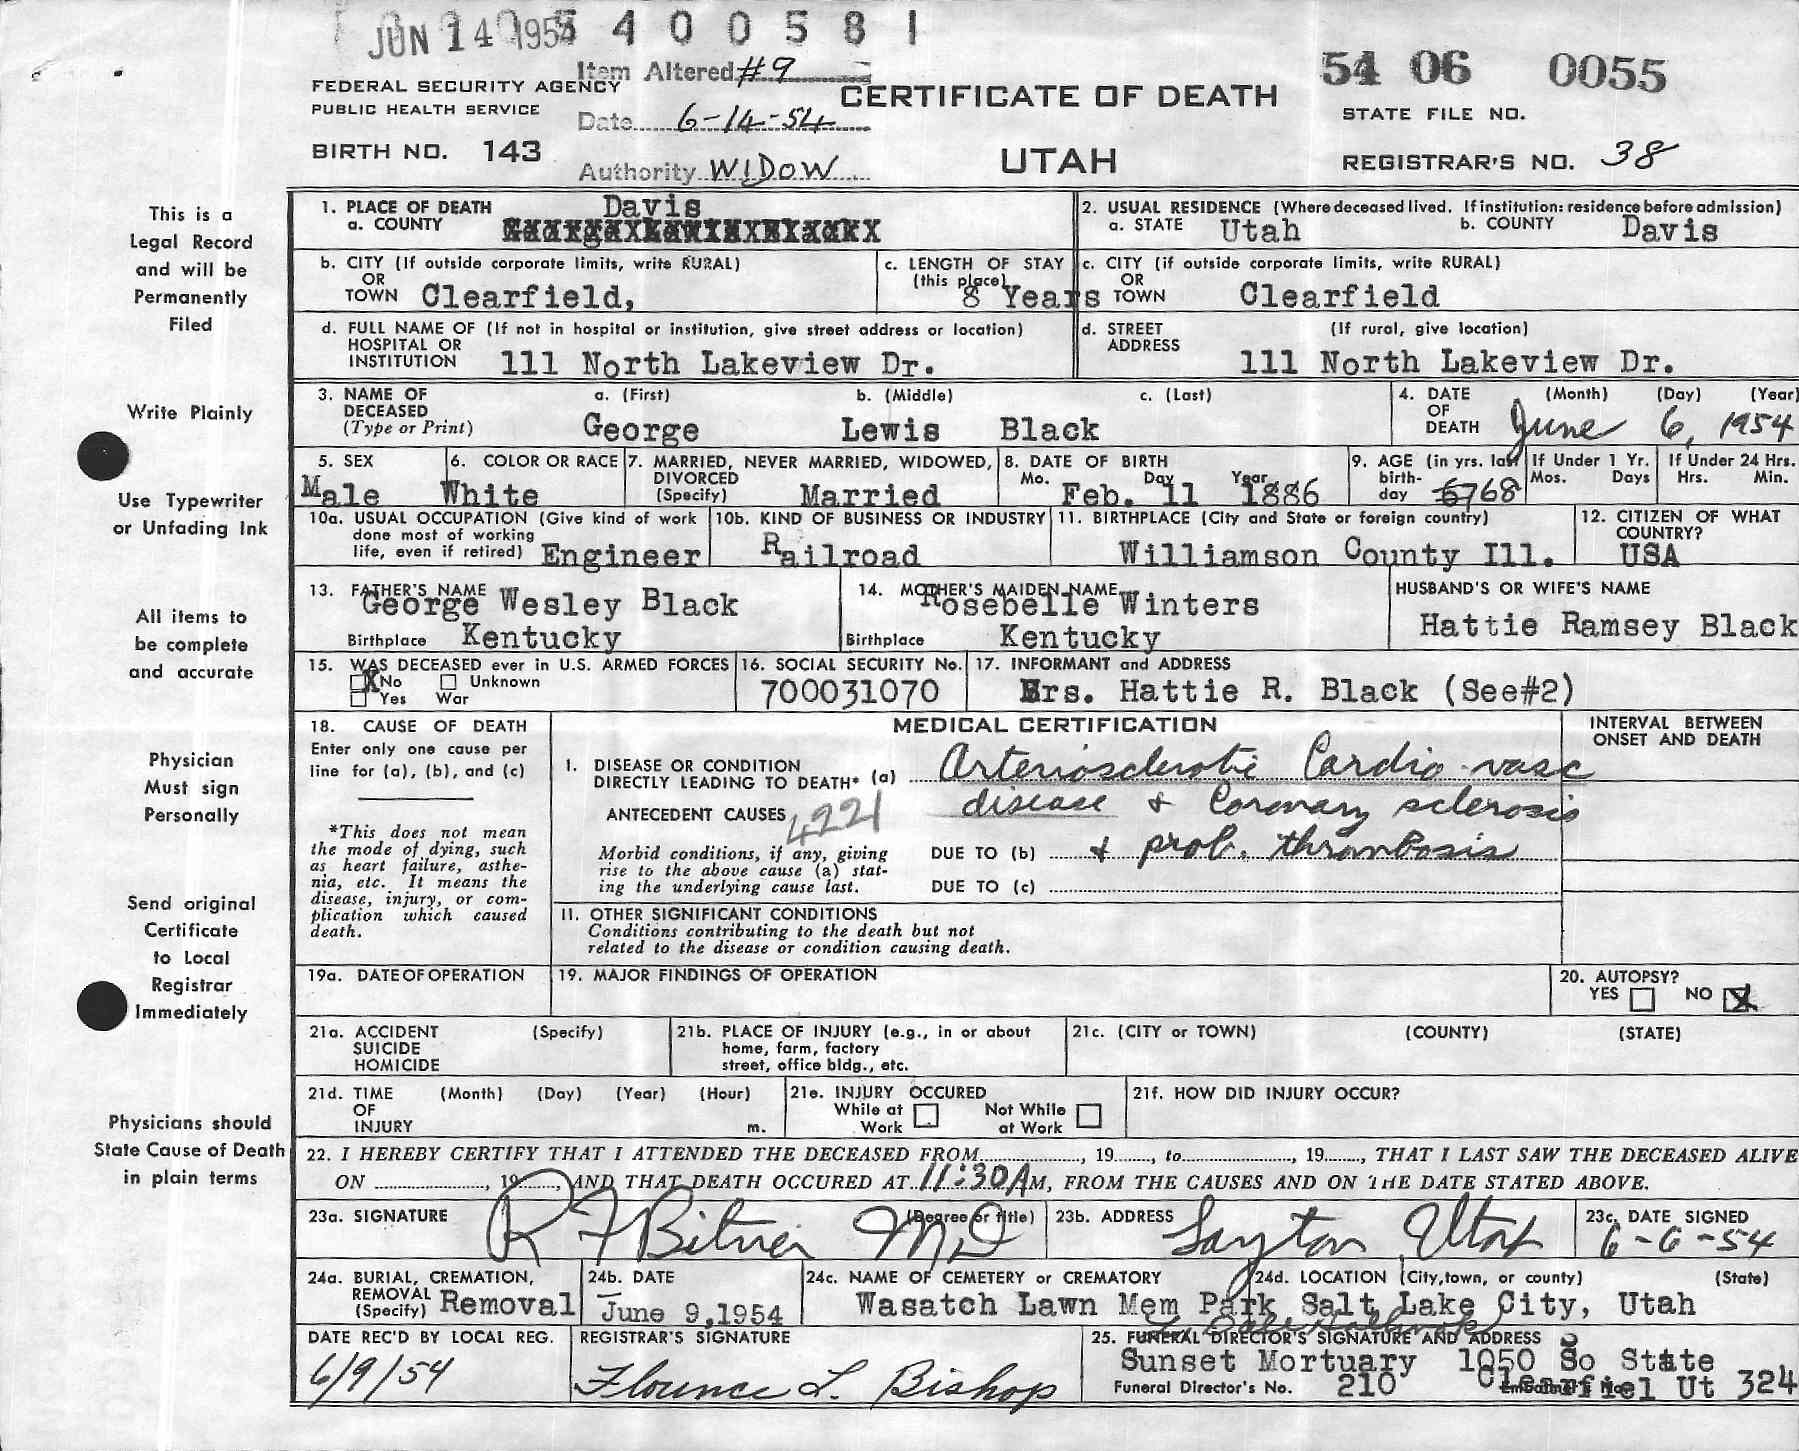 JUN 14 1954 5400581
Item Altered #9
54 06 0055
FEDERAL SECURITY AGENCY
PUBLIC HEALTH SERVICE
Date 6-14-54
CERTIFICATE OF DEATH
STATE FILE NO.
BIRTH NO. 143
Authority WIDOW
UTAH
REGISTRAR'S NO. 38
This is a
Legal Record
and will be
Permanently
Filed
Write Plainly
Use Typewriter
or Unfading Ink
All items to
be complete
and accurate
Physician
Must sign
Personally
Send original
Certificate
to Local
Registrar
Immediately
Physicians should
State Cause of Death
in plain terms
1. PLACE OF DEATH
a. COUNTY Davis
2. USUAL RESIDENCE (Where deceased lived. If institution: residence before admission)
a. STATE Utah b. COUNTY Davis
b. CITY (If outside corporate limits, write RURAL)
OR
TOWN Clearfield,
c. LENGTH OF STAY
(this place) 8 Years
c. CITY (if outside corporate limits, write RURAL)
OR
TOWN Clearfield
d. FULL NAME OF (If not in hospital or institution, give street address or location)
HOSPITAL OR
INSTITUTION 111 North Lakeview Dr.
d. STREET (If rural, give location)
ADDRESS 111 North Lakeview Dr.
3. NAME OF a. (First) b. (Middle) c. (Last)
DECEASED
(Type or Print) George Lewis Black
4. DATE (Month) (Day) (Year)
OF
DEATH June 6, 1954
5. SEX
Male
6. COLOR OR RACE
White
7. MARRIED, NEVER MARRIED, WIDOWED,
DIVORCED
(Specify) Married
8. DATE OF BIRTH
Mo. Day Year
Feb. 11 1886
9. AGE (in yrs. last
birth-
day 67 68
If Under 1 Yr.
Mos. Days
If Under 24 Hrs.
Hrs. Min.
10a. USUAL OCCUPATION (Give kind of work
done most of working
life, even if retired) Engineer
10b. KIND OF BUSINESS OR INDUSTRY
Railroad
11. BIRTHPLACE (City and State or foreign country)
Williamson County Ill.
12. CITIZEN OF WHAT
COUNTRY?
USA
13. FATHER'S NAME
George Wesley Black
Birthplace Kentucky
14. MOTHER'S MAIDEN NAME
Rosebelle Winters
Birthplace Kentucky
HUSBAND'S OR WIFE'S NAME
Hattie Ramsey Black
15. WAS DECEASED ever in U.S. ARMED FORCES
X No Unknown
Yes War
16. SOCIAL SECURITY No.
700031070
17. INFORMANT and ADDRESS
Mrs. Hattie R. Black (See#2)
18. CAUSE OF DEATH
Enter only one cause per
line for (a), (b), and (c)
*This does not mean
the mode of dying, such
as heart failure, asthe-
nia, etc. It means the
disease, injury, or com-
plication which caused
death.
MEDICAL CERTIFICATION
INTERVAL BETWEEN
ONSET AND DEATH
I. DISEASE OR CONDITION
DIRECTLY LEADING TO DEATH* (a) Arteriosclerotic Cardio-vasc
ANTECEDENT CAUSES 4221 disease & Coronary sclerosis
Morbid conditions, if any, giving
rise to the above cause (a) stat-
ing the underlying cause last.
DUE TO (b) & prob. thrombosis
DUE TO (c)
II. OTHER SIGNIFICANT CONDITIONS
Conditions contributing to the death but not
related to the disease or condition causing death.
19a. DATE OF OPERATION
19. MAJOR FINDINGS OF OPERATION
20. AUTOPSY?
YES NO X
21a. ACCIDENT (Specify)
SUICIDE
HOMICIDE
21b. PLACE OF INJURY (e.g., in or about
home, farm, factory
street, office bldg., etc.
21c. (CITY or TOWN) (COUNTY) (STATE)
21d. TIME (Month) (Day) (Year) (Hour)
OF
INJURY m.
21e. INJURY OCCURED
While at Work Not While at Work
21f. HOW DID INJURY OCCUR?
22. I HEREBY CERTIFY THAT I ATTENDED THE DECEASED FROM, 19, to, 19, THAT I LAST SAW THE DECEASED ALIVE
ON, 19, AND THAT DEATH OCCURED AT 11:30A M, FROM THE CAUSES AND ON THE DATE STATED ABOVE.
23a. SIGNATURE (Degree or title)
R F Bitner MD
23b. ADDRESS
Layton Utah
23c. DATE SIGNED
6-6-54
24a. BURIAL, CREMATION,
REMOVAL
(Specify) Removal
24b. DATE
June 9, 1954
24c. NAME OF CEMETERY or CREMATORY
Wasatch Lawn Mem Park
24d. LOCATION (City, town, or county) (State)
Salt Lake City, Utah
DATE REC'D BY LOCAL REG.
6/9/54
REGISTRAR'S SIGNATURE
Florence L. Bishop
25. FUNERAL DIRECTOR'S SIGNATURE AND ADDRESS
Sunset Mortuary 1050 So State
Funeral Director's No. 210 Clearfiel Ut 324